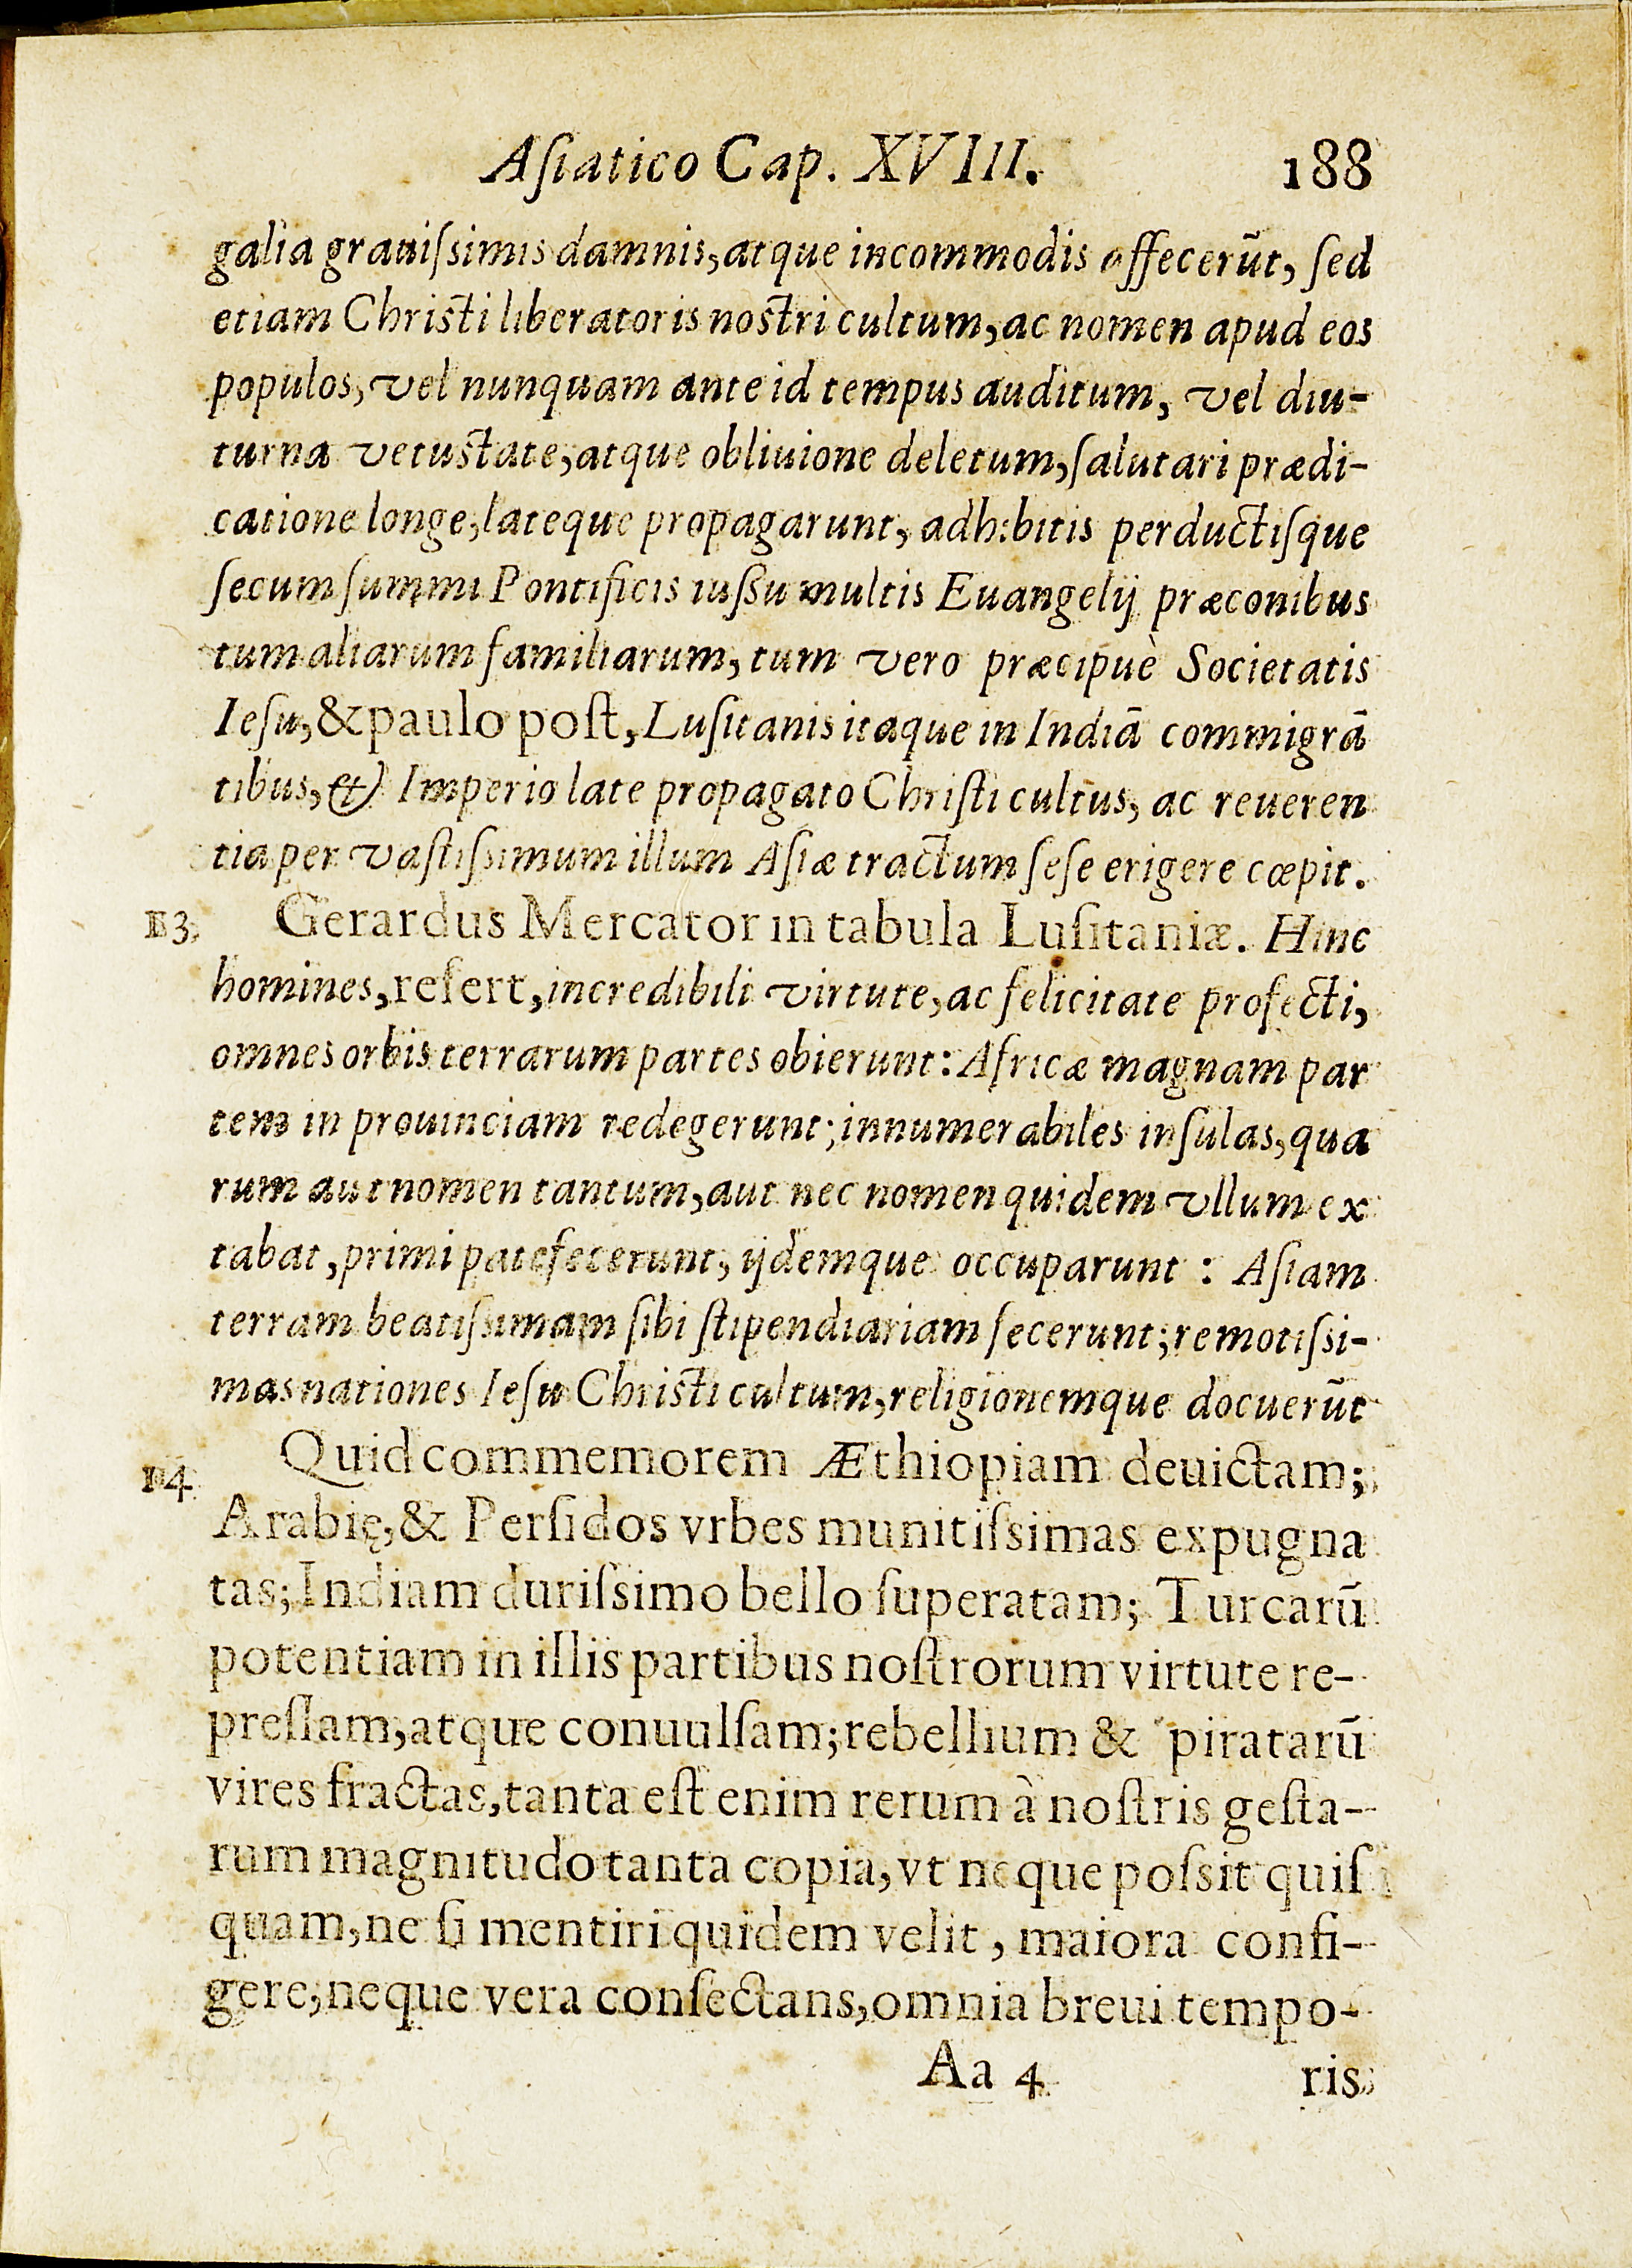 Aſiatico Cap. XVIII. 188
galia grauiſsimis damnis, atque incommodis affecerūt, ſed
etiam Chriſti liberatoris noſtri cultum, ac nomen apud eos
populos, vel nunquam ante id tempus auditum, vel diu-
turna vetuſtate, atque obliuione deletum, ſalutari prædi-
catione longe, lateque propagarunt, adhibitis perductiſque
ſecum ſummi Pontificis iuſſu multis Euangelij præconibus
tum aliarum familiarum, tum vero præcipuè Societatis
Ieſu, & paulo poſt, Luſitanis itaque in Indiā commigrā
tibus, & Imperio late propagato Chriſti cultus, ac reueren
tia per vaſtiſsimum illum Aſiæ tractum ſeſe erigere cœpit.
113 Gerardus Mercator in tabula Luſitaniæ. Hinc
homines, refert, incredibili virtute, ac felicitate profecti,
omnes orbis terrarum partes obierunt: Africæ magnam par
tem in prouinciam redegerunt; innumerabiles inſulas, qua
rum aut nomen tantum, aut nec nomen quidem vllum ex
tabat, primi patefecerunt, ijdemque occuparunt: Aſiam
terram beatiſsimam ſibi ſtipendiariam fecerunt; remotiſsi-
mas nationes Ieſu Chriſti cultum, religionemque docuerūt
114 Quid commemorem Æthiopiam deuictam;
Arabię, & Perſidos vrbes munitiſsimas expugna
tas; Indiam duriſsimo bello ſuperatam; Turcarū
potentiam in illis partibus noſtrorum virtute re-
preſſam, atque conuulſam; rebellium & piratarū
vires fractas, tanta eſt enim rerum à noſtris geſta-
rum magnitudo tanta copia, vt neque poſsit quiſ
quam, ne ſi mentiri quidem velit, maiora confi-
gere, neque vera conſectans, omnia breui tempo-
Aa 4 ris